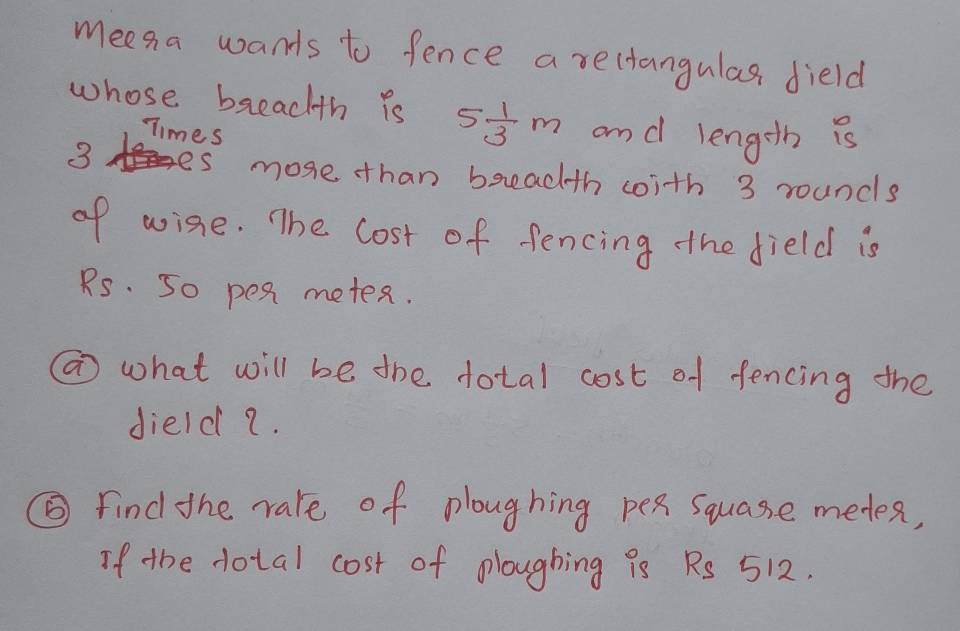 Meera wants to fence a rectangular field
whose breadth is 5 1/3 m and length is
3 Times more than breadth with 3 rounds
of wire. The Cost of fencing the field is
Rs. 50 per meter.
(a) what will be the total cost of fencing the
field ?.
(b) Find the rate of ploughing per square meter,
If the total cost of ploughing is Rs 512.